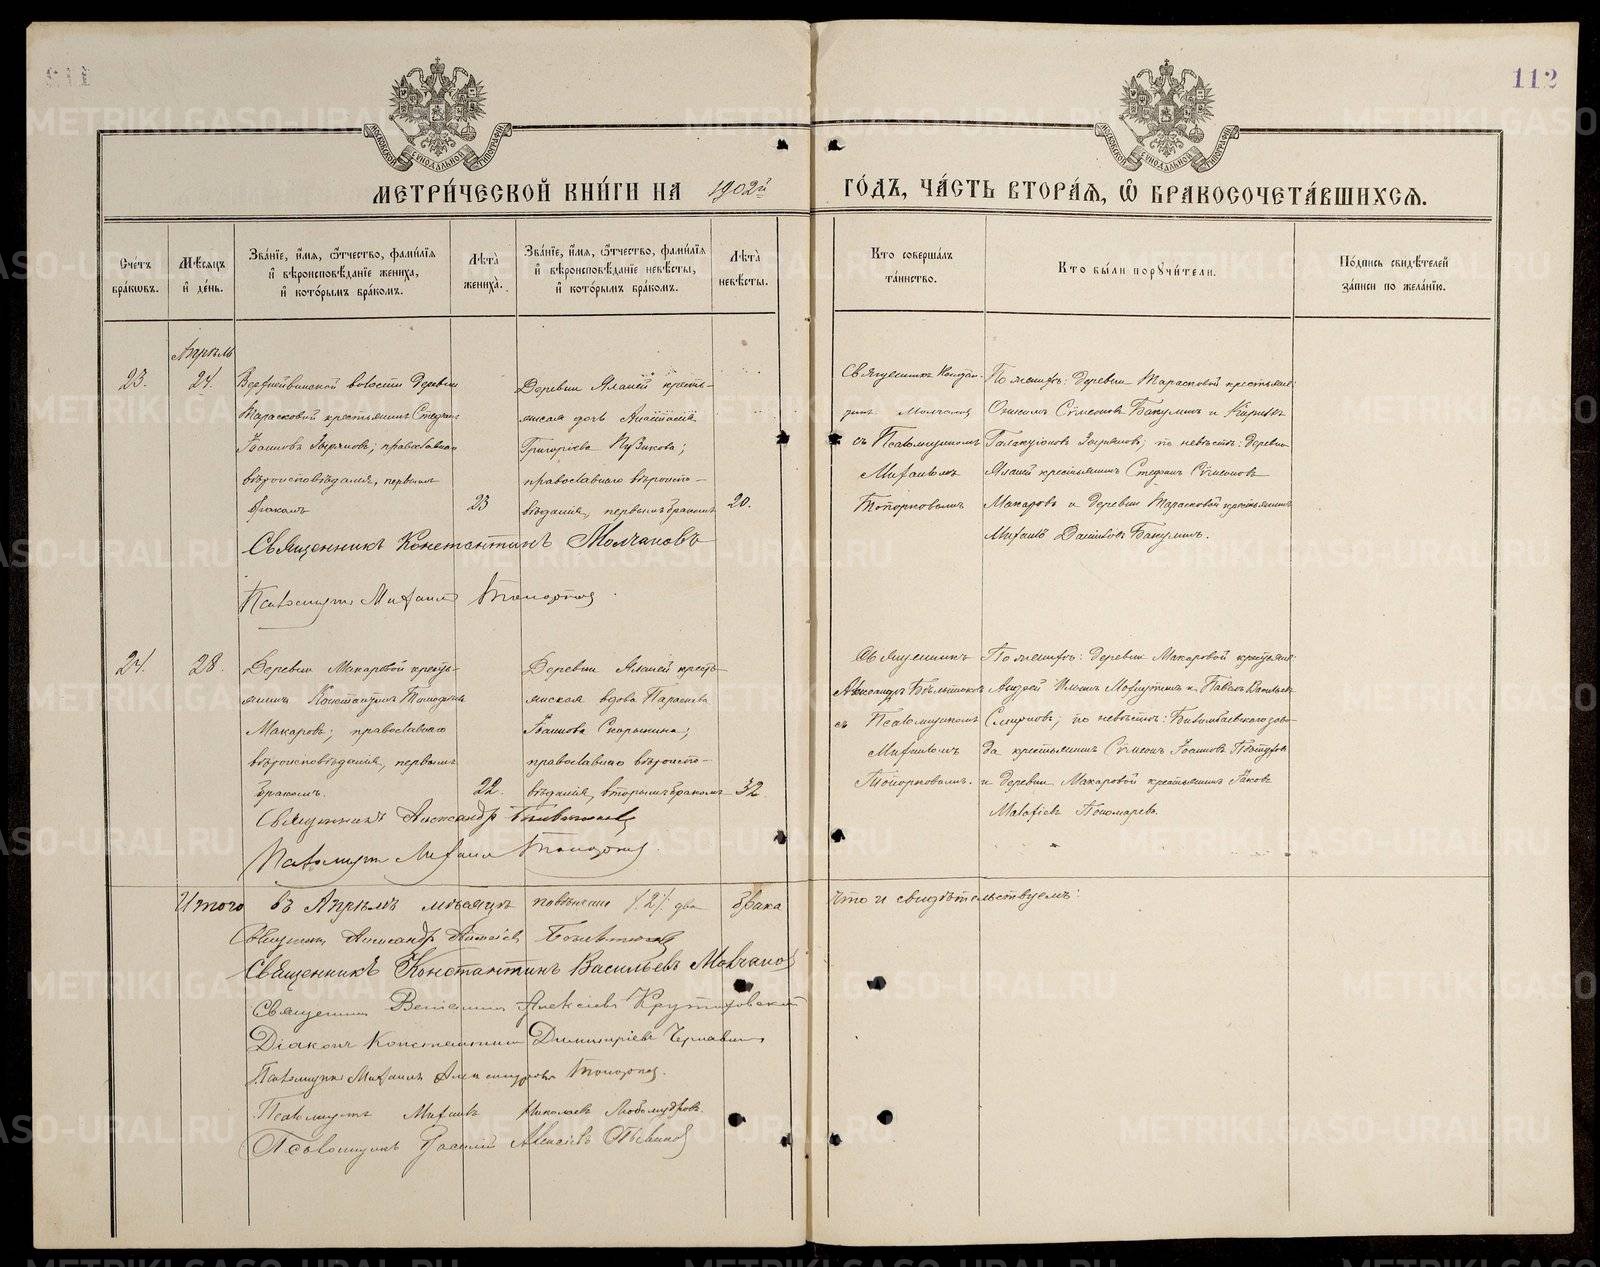 112
МЕТРИ́ЧЕСКОЙ КНИ́ГИ НА 1902й ГО́ДЪ, ЧА́СТЬ ВТОРА́Я, Ѿ БРАКОСОЧЕТА́ВШИХСЯ.
Сче́тъ бра́кѡвъ.
Мѣ́сяцъ и҆ де́нь.
Зва́нїе, и҆́мя, ѻ҆́тчество, фами́лїя и҆ вѣроисповѣ́данїе жениха̀, и҆ кото́рымъ бра́комъ.
Лѣ́та жениха̀.
Зва́нїе, и҆́мя, ѻ҆́тчество, фами́лїя и҆ вѣроисповѣ́данїе невѣ́сты, и҆ кото́рымъ бра́комъ.
Лѣ́та невѣ́сты.
Кто соверша́лъ та́инство.
Кто бы́ли порꙋчи́тели.
По́дпись свидѣ́телей за́писи по жела́нїю.
Апрѣль
23.
24.
волости деревни
Тарасковой крестьянинъ Стефанъ
Іоанновъ; православнаго
вѣроисповѣданія, первымъ
бракомъ
23
Деревни Яланей кресть-
янская дочь Анастасія
Григорьева Пузикова;
православнаго вѣроиспо-
вѣданія, первымъ бракомъ
20.
Священникъ
Молчановъ
съ Псаломщикомъ
Михаиломъ
Топорковымъ
По женихѣ: деревни Тарасковой крестьяне:
Онисимъ Сѵмеоновъ Бакулинъ и
по невѣстѣ: деревни
Яланей крестьянинъ Стефанъ Сѵмеоновъ
Макаровъ и деревни Тарасковой крестьянинъ
Михаилъ Даніиловъ Бакулинъ.
Священникъ Константинъ Молчановъ
Псаломщикъ Михаилъ Топорковъ
24.
28.
Деревни Макаровой кресть-
янинъ Константинъ
Макаровъ; православнаго
вѣроисповѣданія, первымъ
бракомъ.
22.
Деревни Яланей кресть-
янская вдова Параскева
Іоаннова Скорынина;
православнаго вѣроиспо-
вѣданія, вторымъ бракомъ
32.
Священникъ
Александръ
съ Псаломщикомъ
Михаиломъ
Топорковымъ.
По женихѣ: деревни Макаровой крестьяне:
Андрей Ильинъ и Павелъ Васильевъ
Смирновъ; по невѣстѣ: Билимбаевскаго заво-
да крестьянинъ Сѵмеонъ Іоанновъ
и деревни Макаровой крестьянинъ Іаковъ
Малафіевъ Пономаревъ.
Священникъ Александръ
Псаломщикъ Михаилъ Топорковъ
Итого въ Апрѣлѣ мѣсяцѣ повѣнчано /2/ два брака что и свидѣтельствуемъ:
Священникъ Александръ Алексѣевъ
Священникъ Константинъ Васильевъ Молчановъ
Священникъ Веніаминъ Алексіевъ
Діаконъ Константинъ Димитріевъ Чернавинъ
Псаломщикъ Михаилъ Александровъ Топорковъ.
Псаломщикъ Михаилъ Николаевъ Любомудровъ.
Псаломщикъ Василій Алексіевъ
METRIKI.GASO-URAL.RU